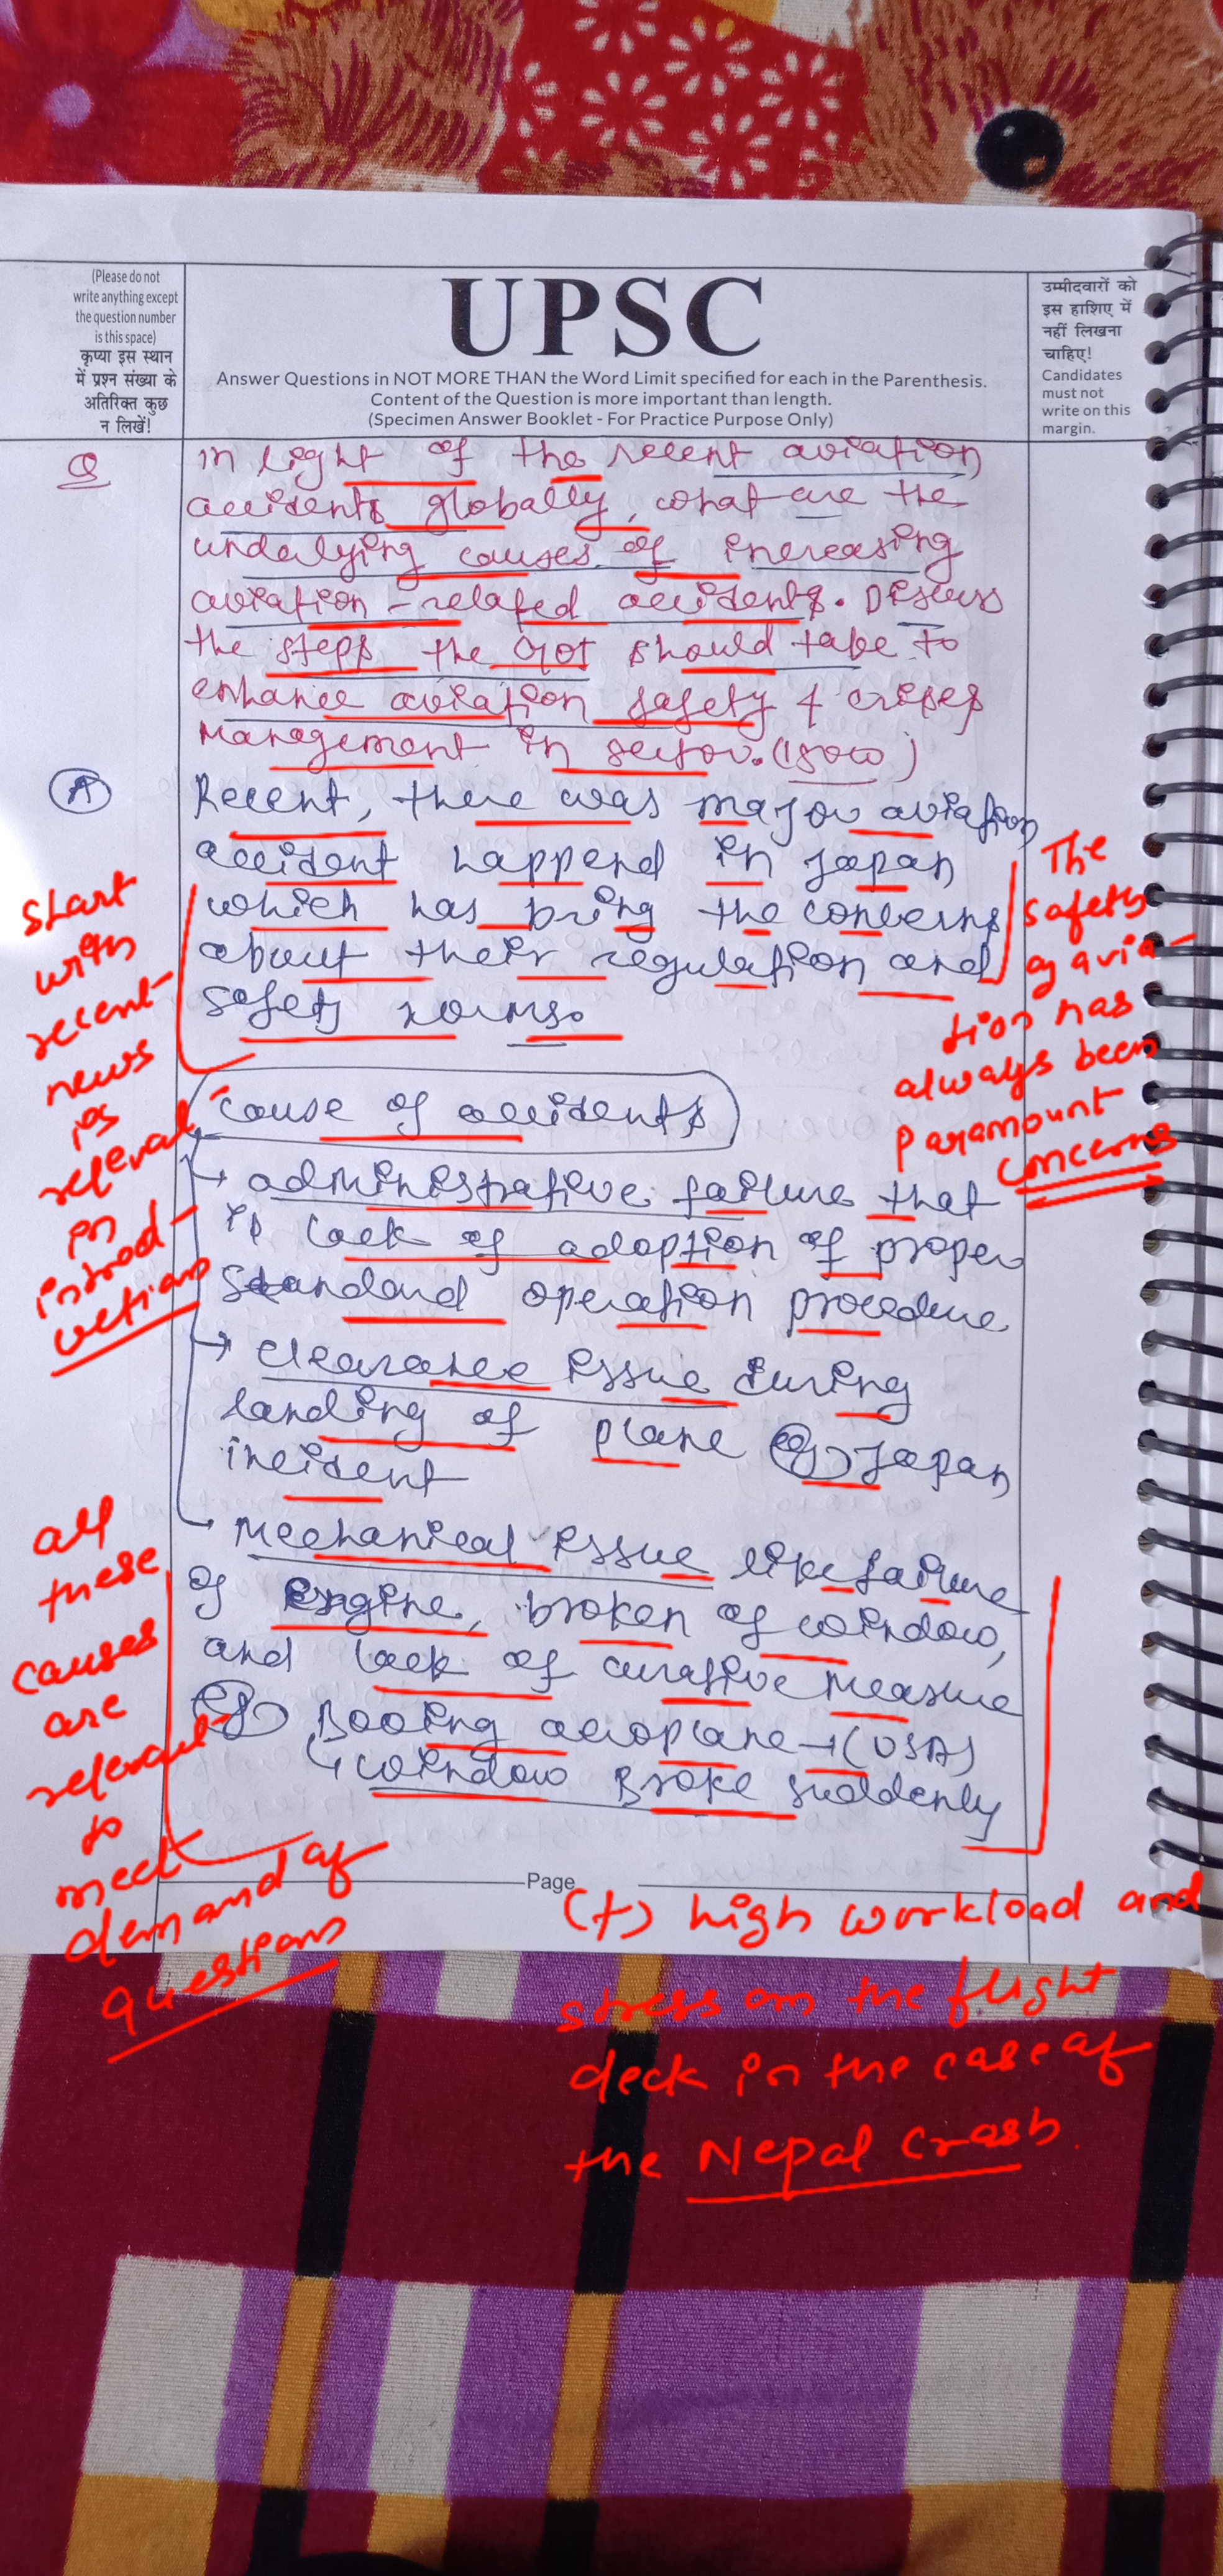 (Please do not
write anything except
the question number
is this space)
कृप्या इस स्थान
में प्रश्न संख्या के
अतिरिक्त कुछ
न लिखें!
UPSC
Answer Questions in NOT MORE THAN the Word Limit specified for each in the Parenthesis.
Content of the Question is more important than length.
(Specimen Answer Booklet - For Practice Purpose Only)
उम्मीदवारों को
इस हाशिए में
नहीं लिखना
चाहिए!
Candidates
must not
write on this
margin.
Q
in light of the recent aviation
accidents globally, what are the
underlying causes of increasing
aviation-related accidents. Discuss
the steps the GOI should take to
enhance aviation safety & crises
management in sector. (150w)
A
Recent, there was major aviation
accident happend in Japan
which has bring the concerns
about their regulation and
safety norms.
start
with
recent
news
is
relevant
in
introd-
uction
The
safety
of avia-
tion has
always been
paramount
concerns
cause of accidents
→ administrative failure that
is lack of adoption of proper
standard operation procedure
→ clearance issue during
landing of plane eg Japan
incident
→ Mechanical issue like failure
of Engine, broken of window,
and lack of curative measure
eg Booing aeroplane → (USA)
↳ window Broke suddenly
all
these
causes
are
relevant
to
meet
demand of
questions
Page
(+) high workload and
stress on the flight
deck in the case of
the Nepal crash.